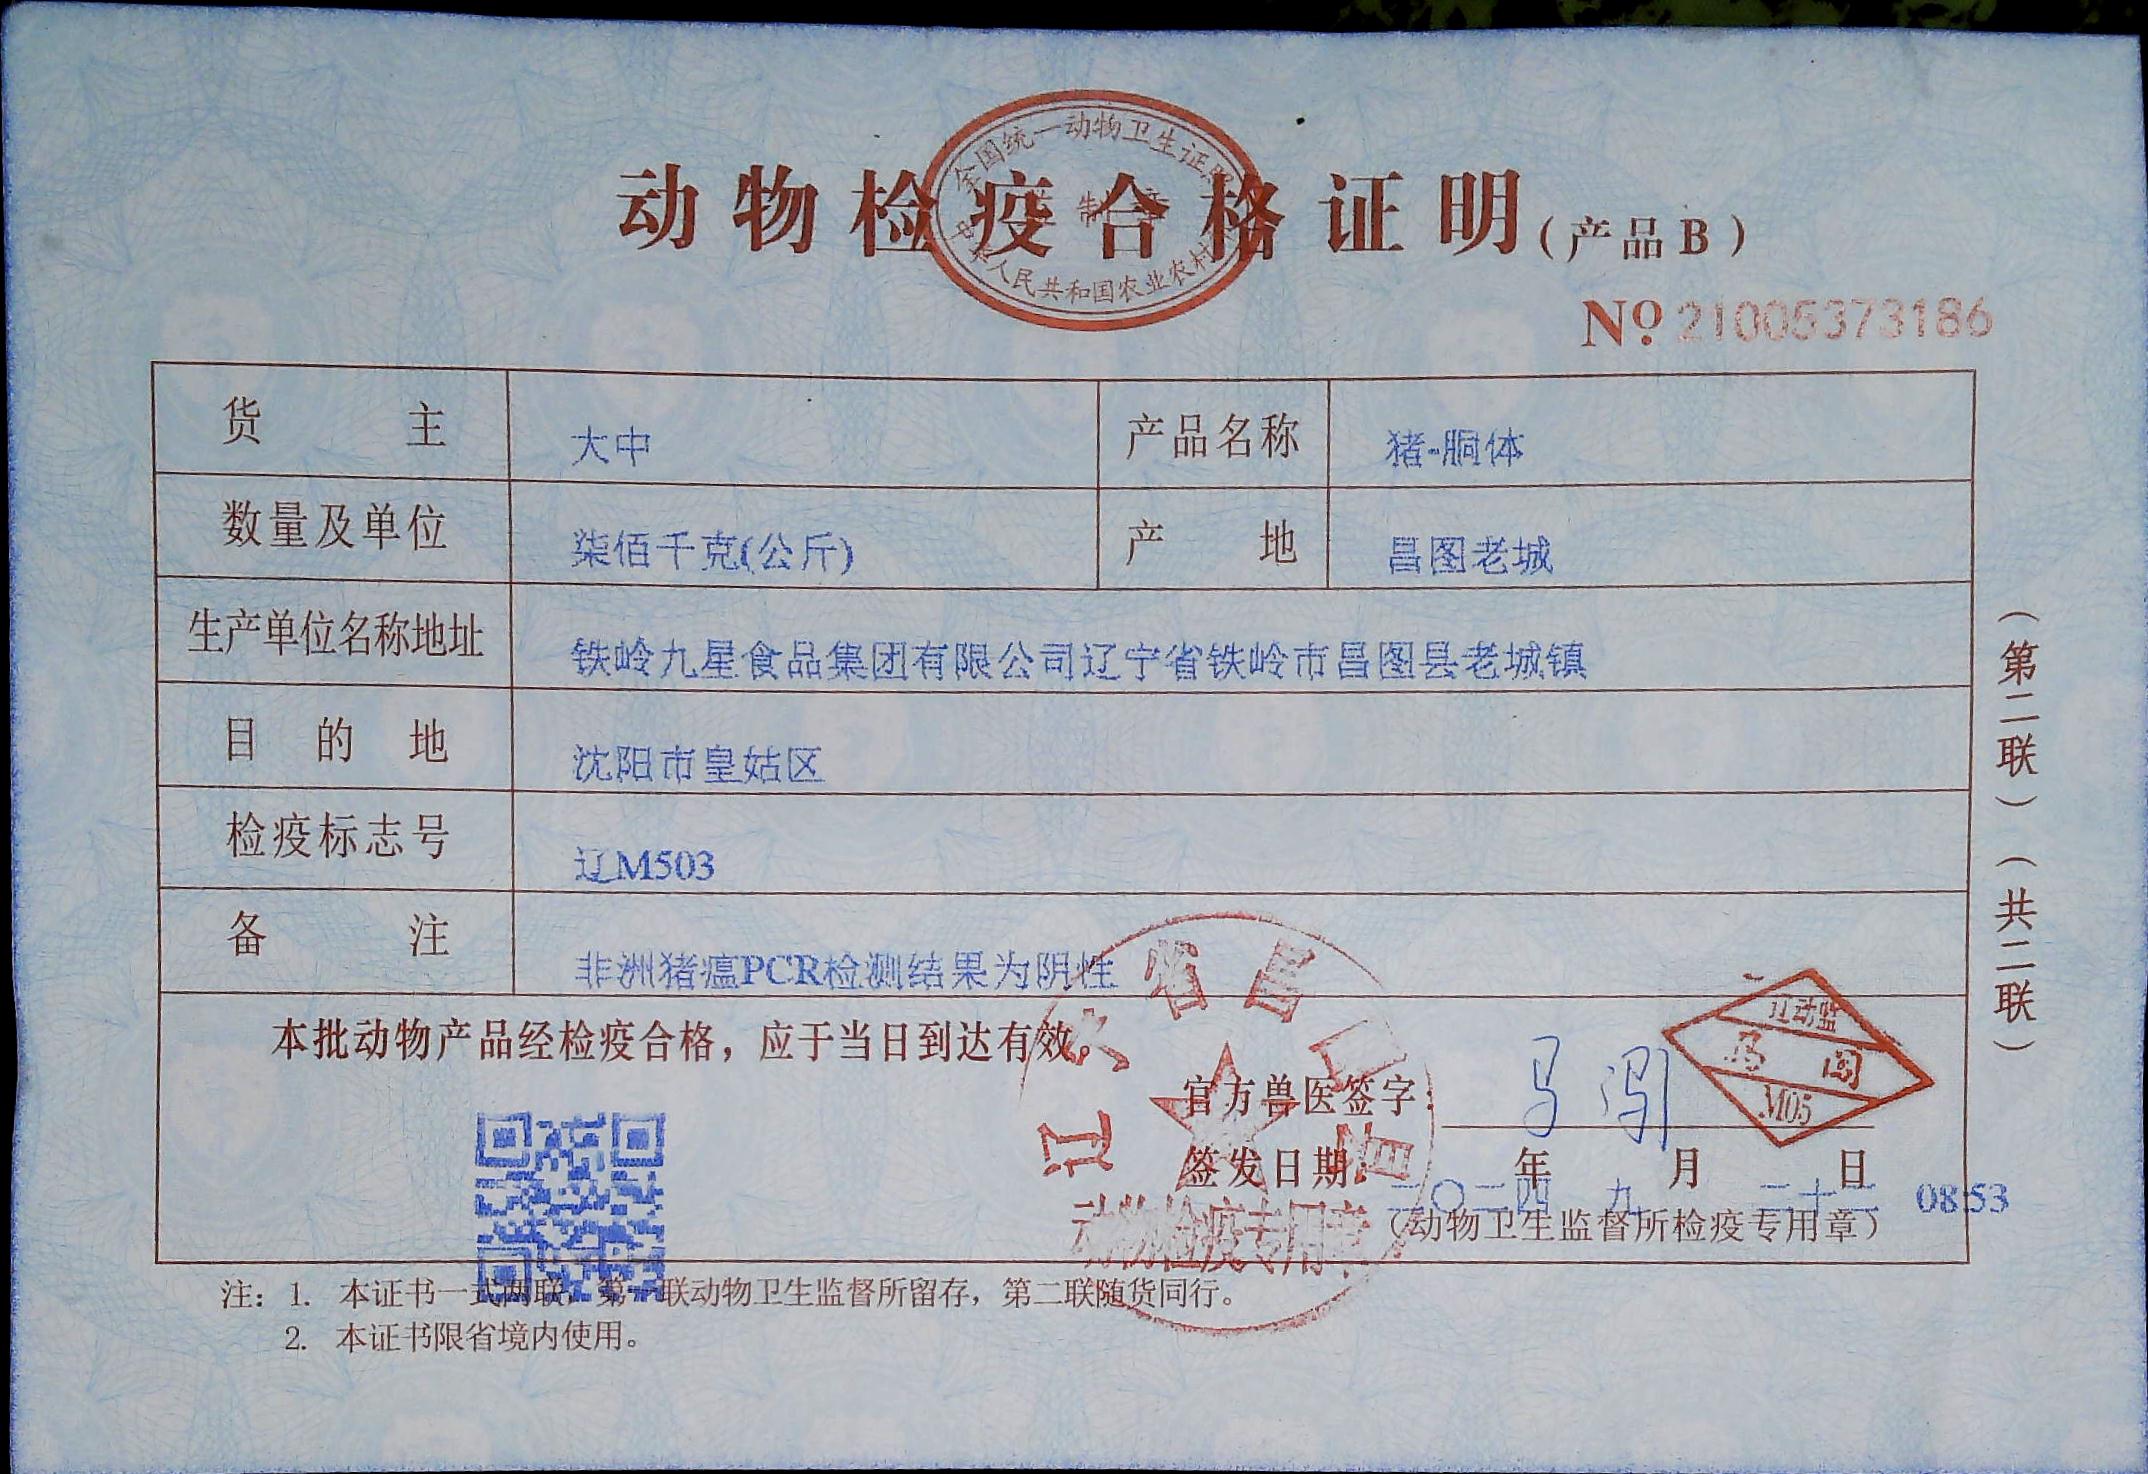 全国统一动物卫生证
中华人民共和国农业农村
动物检疫合格证明(产品B)
№ 21005373186
货主 大中 产品名称 猪-胴体
数量及单位 柒佰千克(公斤) 产地 昌图老城
生产单位名称地址 铁岭九星食品集团有限公司辽宁省铁岭市昌图县老城镇
目的地 沈阳市皇姑区
检疫标志号 辽M503
备注 非洲猪瘟PCR检测结果为阴性
本批动物产品经检疫合格，应于当日到达有效。
辽动监
马闯
M05
官方兽医签字: 马闯
签发日期: 二〇二四年九月二十二日 08:53
(动物卫生监督所检疫专用章)
辽宁省昌图县
动物检疫专用章
注: 1. 本证书一式两联，第一联动物卫生监督所留存，第二联随货同行。
2. 本证书限省境内使用。
(第二联)(共二联)